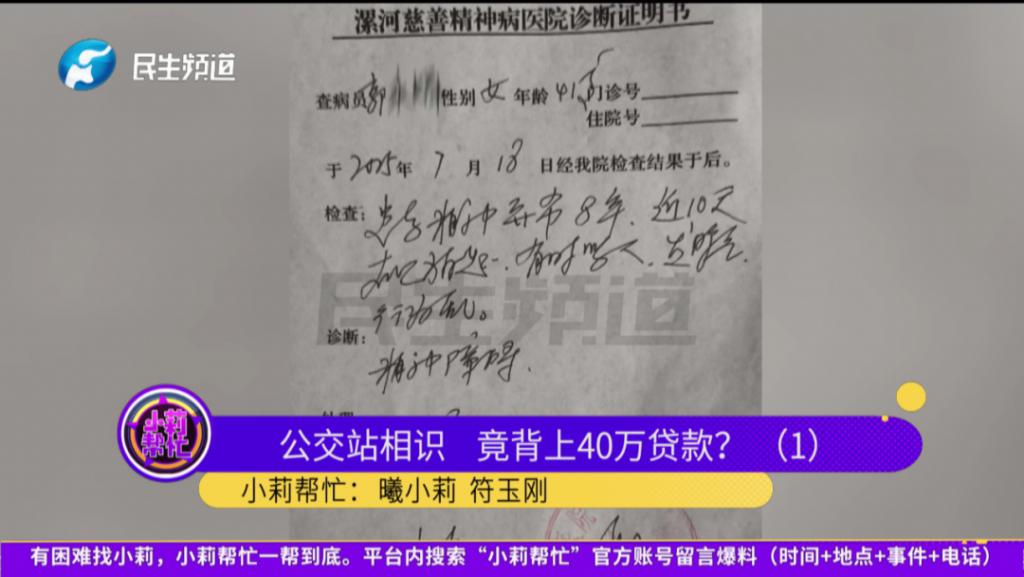 漯河慈善精神病医院诊断证明书
民生频道
查病员 郭 性别 女 年龄 41岁 门诊号
住院号
于 2025年 7 月 18 日经我院检查结果于后。
检查: 患者精神异常8年. 近10天
有时骂人.
行为乱。
民生频道
诊断:
精神障碍.
小莉帮忙
公交站相识 竟背上40万贷款？（1）
小莉帮忙：曦小莉 符玉刚
有困难找小莉，小莉帮忙一帮到底。平台内搜索“小莉帮忙”官方账号留言爆料（时间+地点+事件+电话）